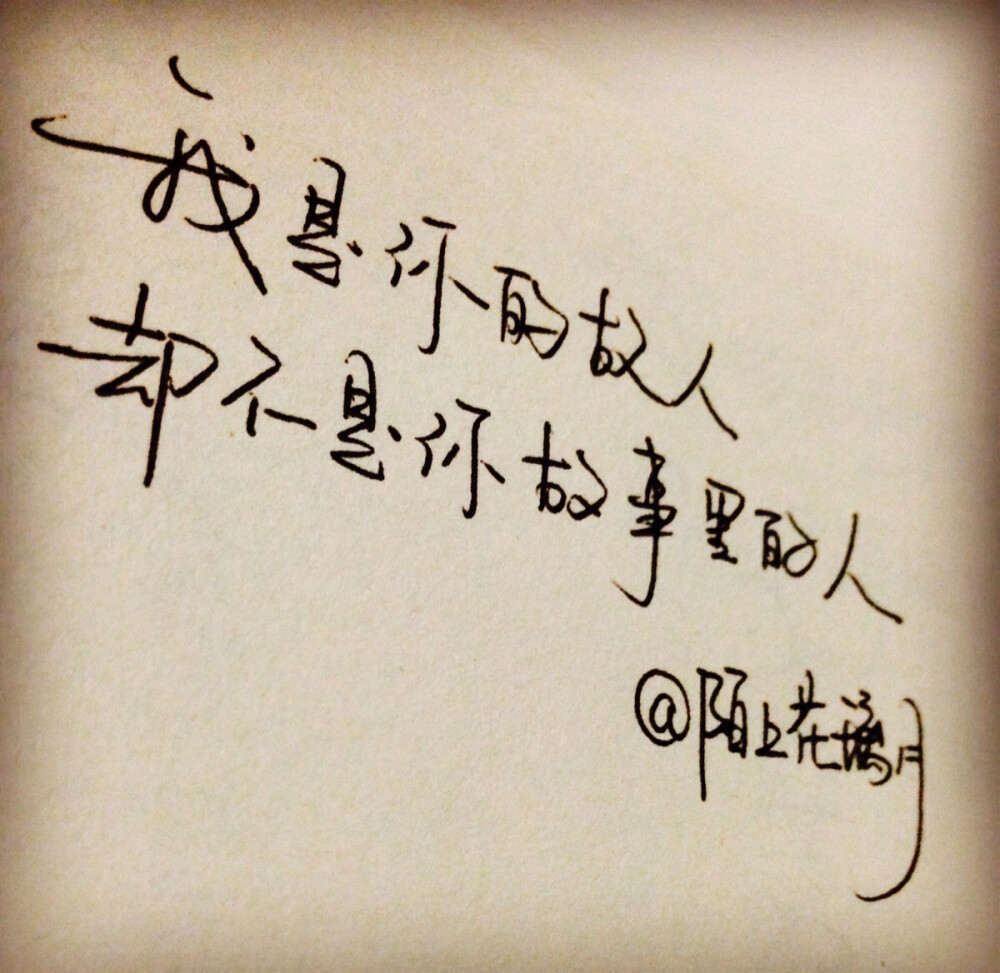 我是你的故人
却不是你故事里的人
@陌上花璃月